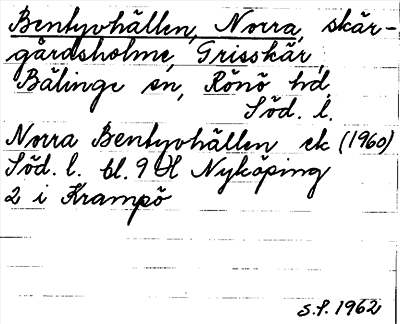 Bentyvhällen, Norra, skär-
gårdsholme, Grisskär,
Bälinge sn, Rönö hd,
Söd. l.
Norra Bentyvhällen ek (1960)
Söd. l. bl. 9 H Nyköping
2 i Krampö
S.F. 1962